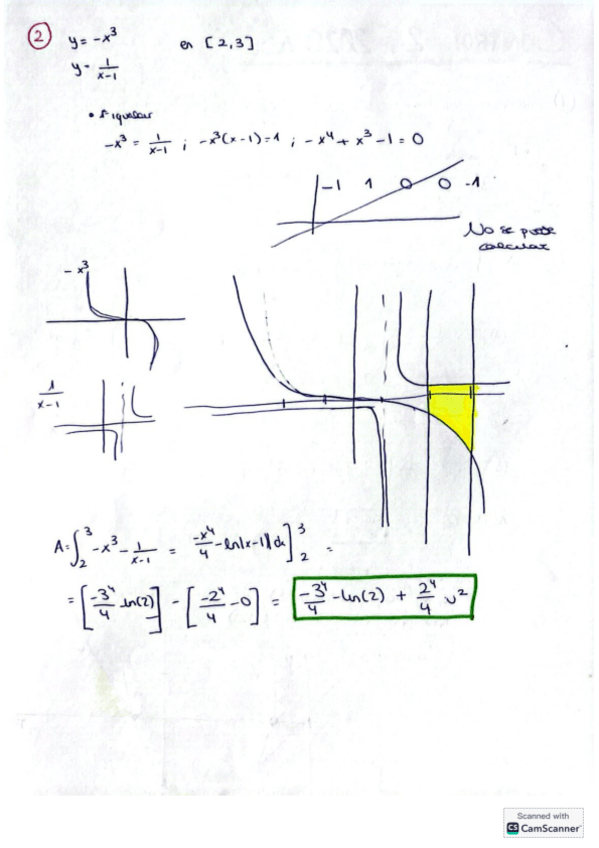 2 y = -x³ en [2,3]
y = 1/(x-1)
-x³ = 1/(x-1) ; -x³(x-1)=1 ; -x⁴ + x³ - 1 = 0
-1 1 0 0 -1
No se puede
calcular
-x³
1/(x-1)
A = ∫₂³ -x³ - 1/(x-1) = -x⁴/4 - ln|x-1| dx]₂³ =
= [-3⁴/4 - ln(2)] - [-2⁴/4 - 0] = -3⁴/4 - ln(2) + 2⁴/4 u²
Scanned with
CS CamScanner